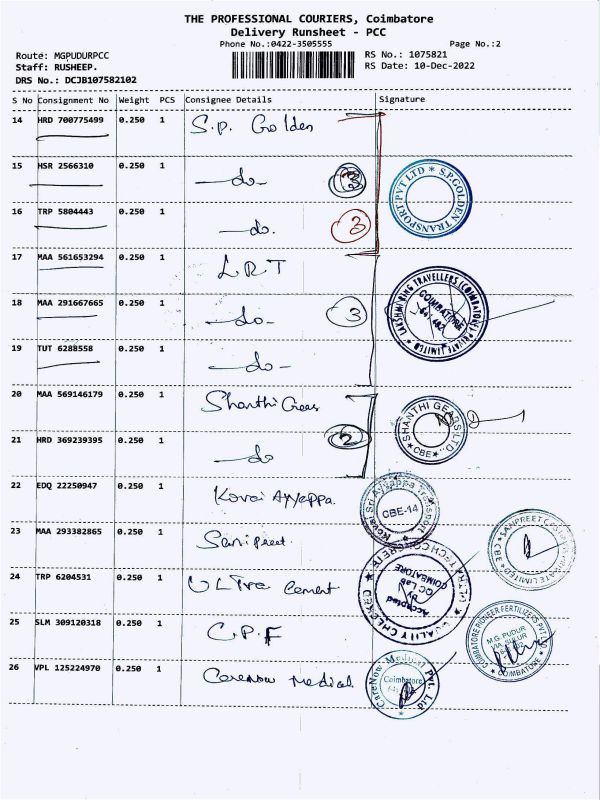 THE PROFESSIONAL COURIERS, Coimbatore
Delivery Runsheet - PCC
Phone No.:0422-3505555
Page No.:2
Route: MGPUDURPCC
RS No.: 1075821
Staff: RUSHEEP.
RS Date: 10-Dec-2022
DRS No.: DCJB107582102
S No Consignment No Weight PCS Consignee Details Signature
14 HRD 700775499 0.250 1 S.p. Golden
15 HSR 2566310 0.250 1 -do- 3
S.P.GOLDEN TRANSPORT PVT LTD *
16 TRP 5804443 0.250 1 -do. 3
17 MAA 561653294 0.250 1 L R T
18 MAA 291667665 0.250 1 -do- 3
LAKSHMI RING TRAVELLERS (COIMBATORE) PRIVATE LIMITED *
COIMBATORE
19 TUT 6288558 0.250 1 -do-
20 MAA 569146179 0.250 1 Shanthi Gears
SHANTHI GEARS LTD.
* CBE *
21 HRD 369239395 0.250 1 -do 2
22 EDQ 22250947 0.250 1 Kovai Ayyappa.
Kovai Sri Ayyappa Transport
CBE-14
23 MAA 293382865 0.250 1 Sanipreet.
24 TRP 6204531 0.250 1 ULTra Cement
QUALITY CHECKED
Accepted
by
QC Lab
COIMBATORE
25 SLM 309120318 0.250 1 C.P.F
COIMBATORE PIONEER FERTILIZERS PVT. LTD
M.G. PUDUR
VIA. SULUR
* COIMBATORE *
26 VPL 125224970 0.250 1 Carenow Medical
CareNow Medical Pvt. Ltd
Coimbatore